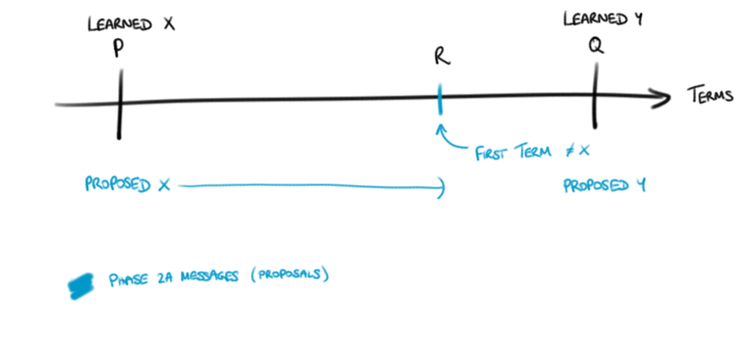 LEARNED X
P
LEARNED Y
Q
R
TERMS
FIRST TERM ≠ X
PROPOSED X
PROPOSED Y
PHASE 2A MESSAGES (PROPOSALS)